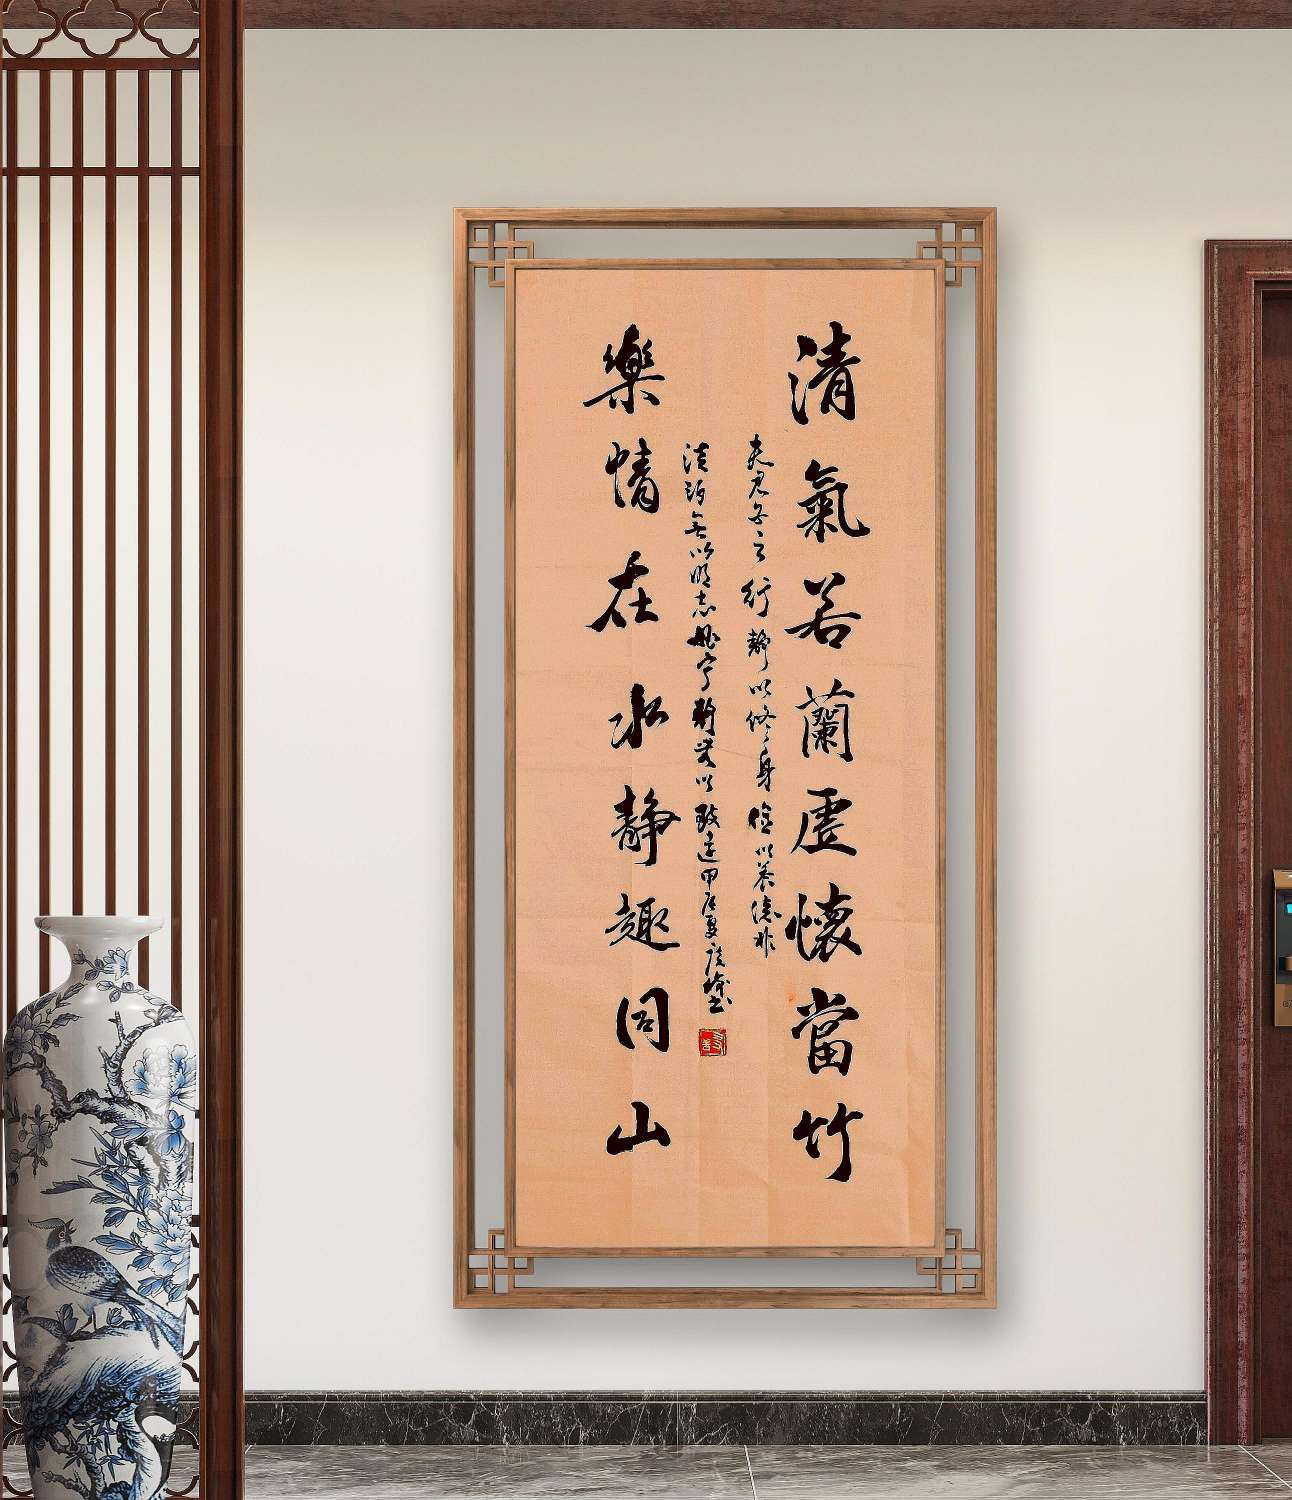 清氣若蘭虚懷當竹
夫君子之行静以修身儉以養德非
淡泊無以明志非寧静無以致遠甲辰夏
樂情在水静趣同山